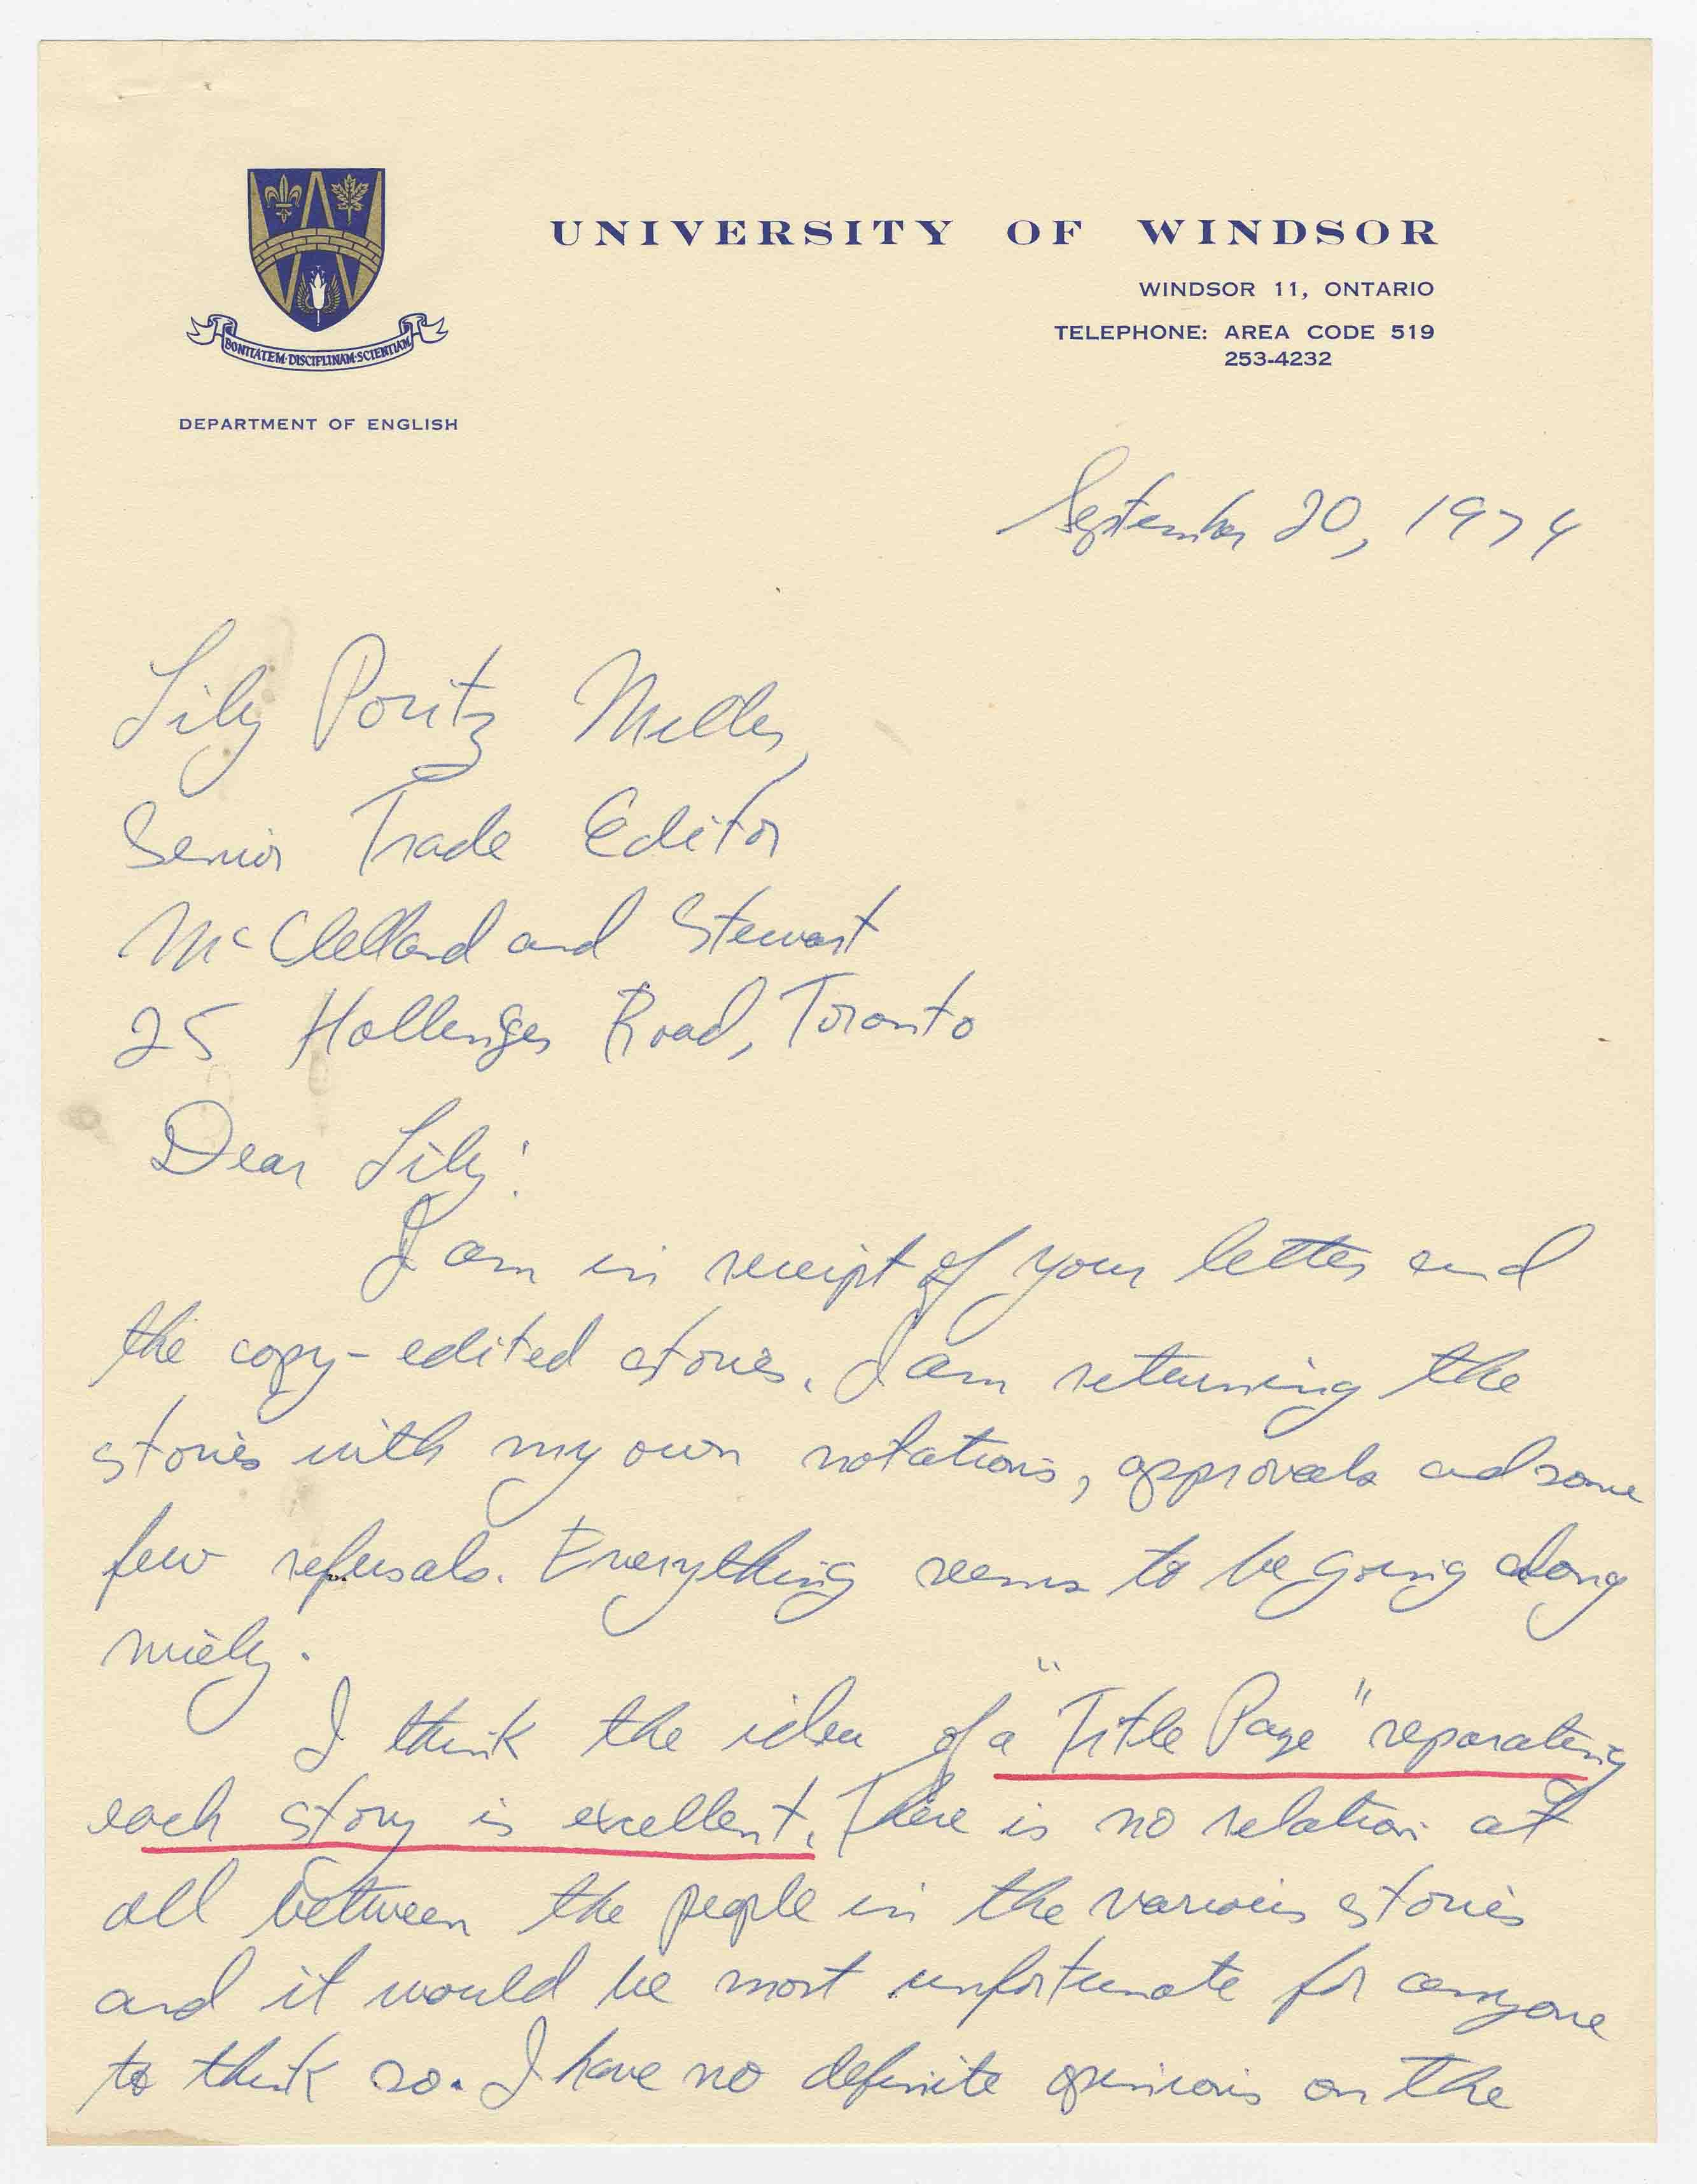 UNIVERSITY OF WINDSOR
WINDSOR 11, ONTARIO
TELEPHONE: AREA CODE 519
253-4232
BONITATEM·DISCIPLINAM·SCIENTIAM
DEPARTMENT OF ENGLISH
September 20, 1974
Lily Poritz Miller,
Senior Trade Editor
McClelland and Stewart
25 Hollinger Road, Toronto
Dear Lily:
I am in receipt of your letter and
the copy-edited stories. I am returning the
stories with my own notations, approvals and some
few refusals. Everything seems to be going along
nicely.
I think the idea of a "Title Page" separating
each story is excellent. There is no relation at
all between the people in the various stories
and it would be most unfortunate for anyone
to think so. I have no definite opinions on the